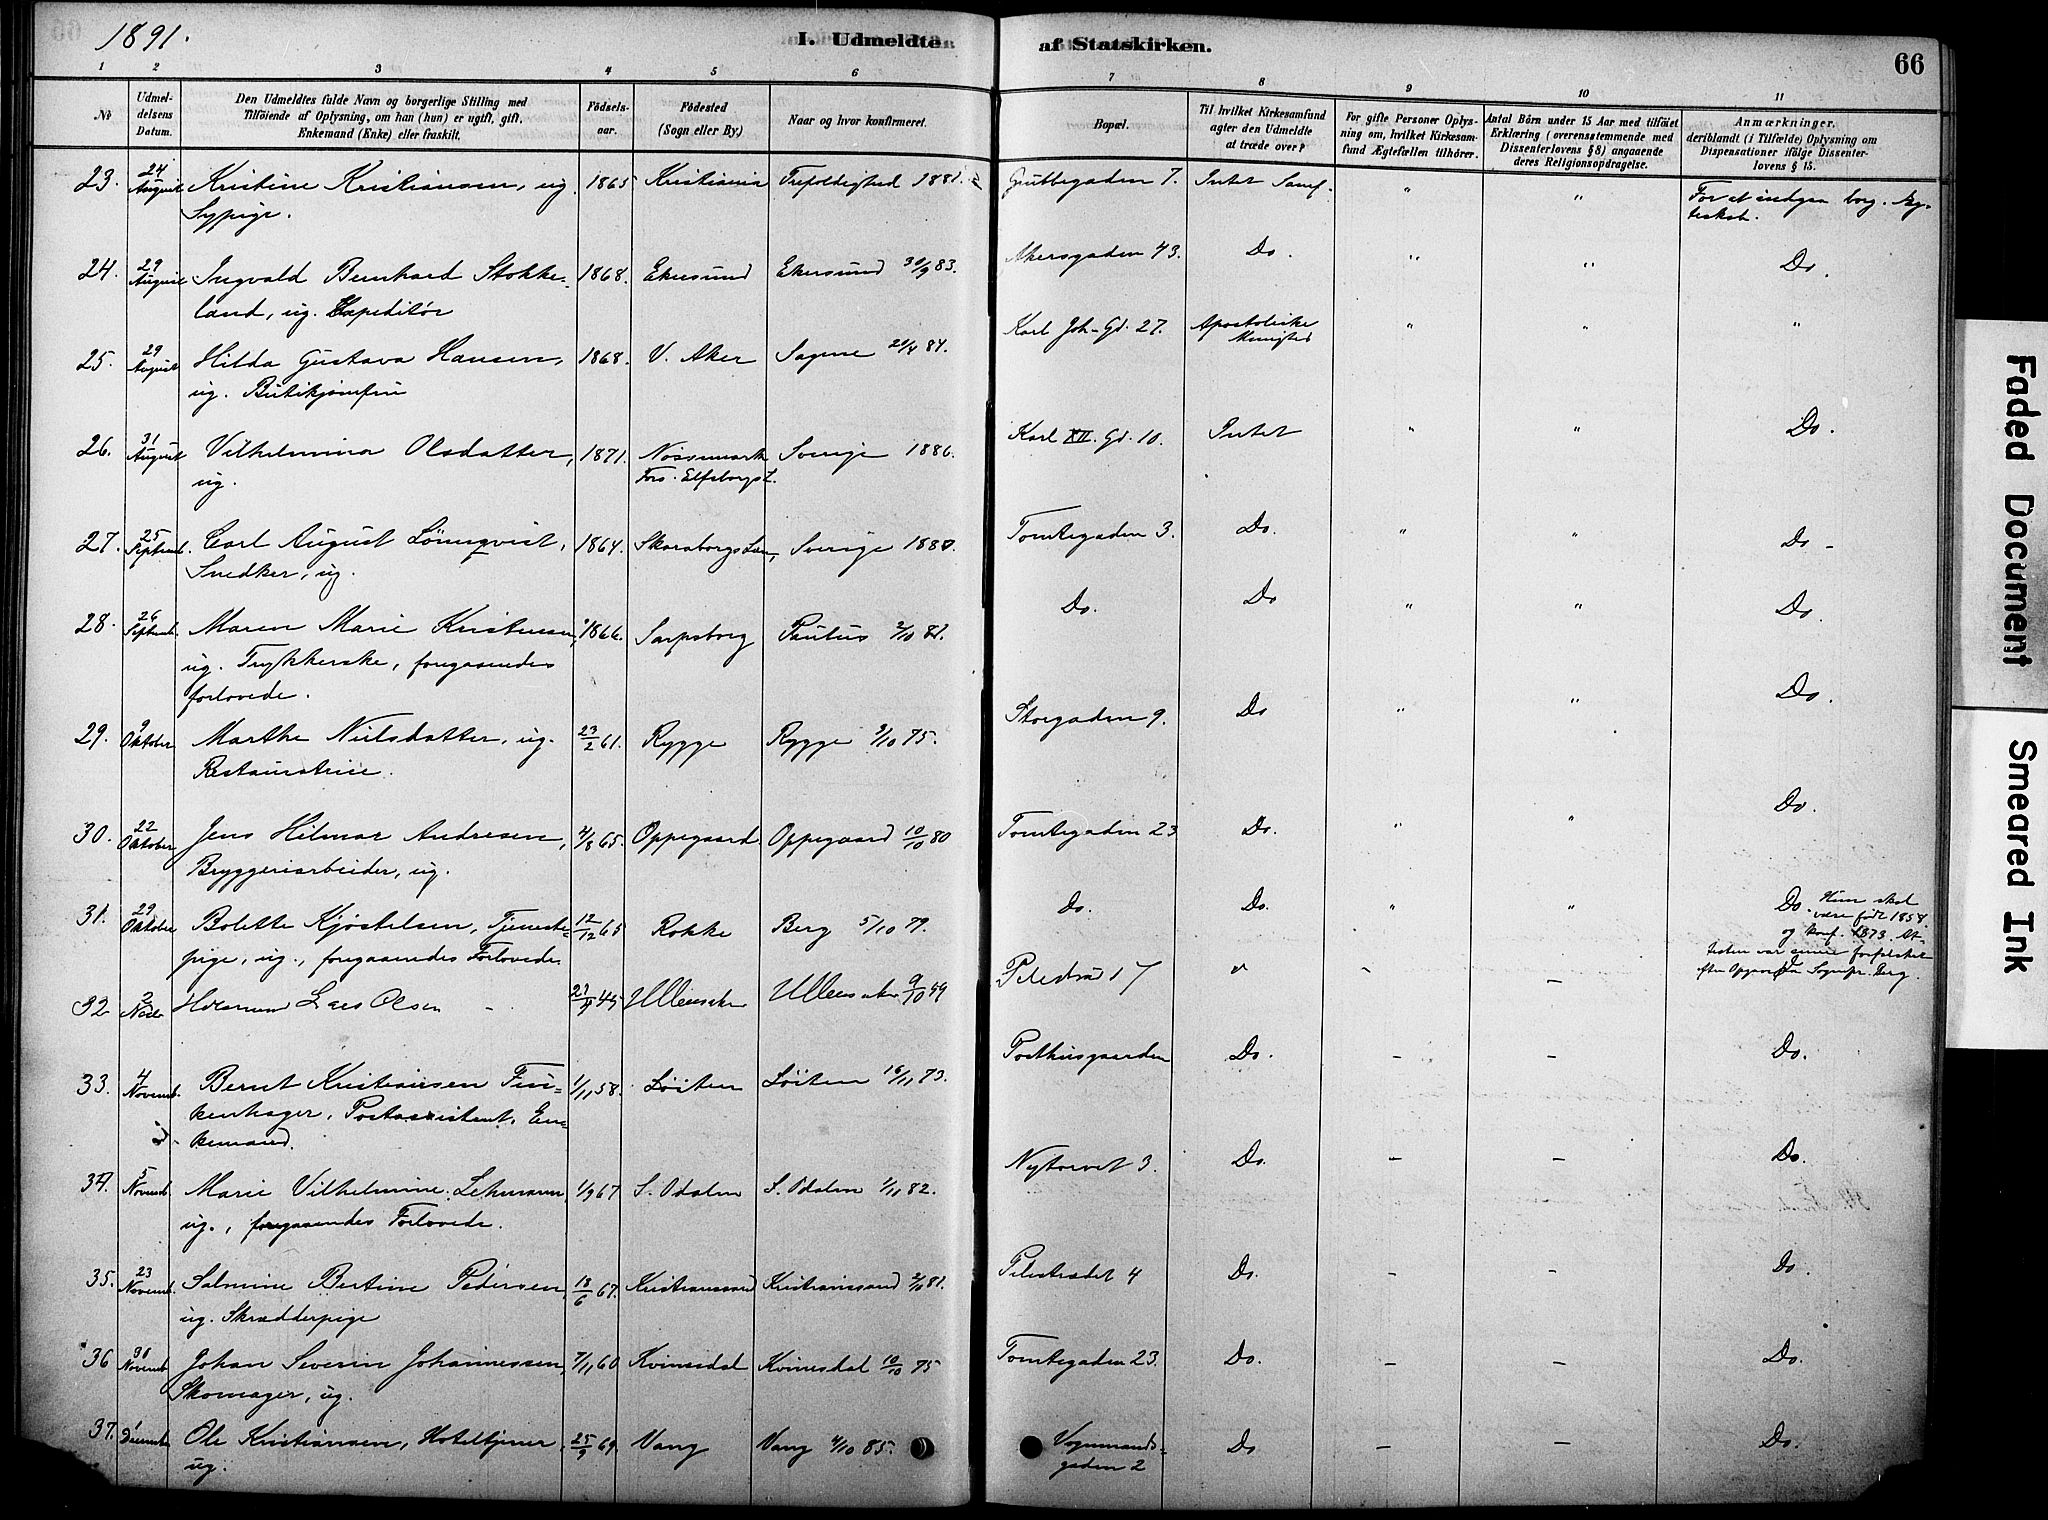 1891.
I. Udmeldte
af Statskirken.
66
1 2 3 4 5 6 7 8 9 10 11
No
Udmel-
delsens
Datum.
Den Udmeldtes fulde Navn og borgerlige Stilling med
Tilföiende af Oplysning, om han (hun) er ugift, gift,
Enkemand (Enke) eller fraskilt.
Födsels-
aar.
Födested
(Sogn eller By.)
Naar og hvor konfirmeret.
Bopæl.
Til hvilket Kirkesamfund
agter den Udmeldte
at træde over?
For gifte Personer Oplys-
ning om, hvilket Kirkesam-
fund Ægtefællen tilhörer.
Antal Börn under 15 Aar med tilföiet
Erklæring (overensstemmende med
Dissenterlovens § 8) angaaende
deres Religionsopdragelse.
Anmærkninger,
deriblandt (i Tilfælde) Oplysning om
Dispensationer ifölge Dissenter-
lovens § 15.
23. 24 August Kristine Kristiansen, ug. 1865 Kristiania Trefoldighed 1881. Grubbegaden 7. Intet Samf. " " For at indgaa borg. Æg-
Sypige. teskab.
24. 29 August Ingvald Bernhard Stokke- 1868. Ekersund Ekersund 30/9 83. Akersgaden 43. Do. " " Do.
land, ug. Expeditör
25. 29 August Hilda Gustava Hansen, 1868. V. Aker Sagene 20/4 84. Karl Joh. Gd. 27. Apostoliske " " "
ug. Butikjomfru Menighed
26. 31 August Vilhelmina Olsdatter, 1871. Nössemark Sverige 1886. Karl XII. Gd. 10. Intet " " Do.
ug. Fors. Elfsborgs L.
27. 25 Septemb. Carl August Lönnqvist, 1864. Skaraborgs Län, Sverige 1880. Tomtegaden 3. Do. " " Do.
Snedker, ug.
28. 26 Septemb. Maren Marie Kristensen, 1866. Sarpsborg Paulus 2/10 81. Do. Do " " Do.
ug. Trykkerske, foregaaendes
forlovede.
29. 9 Oktober Marthe Nielsdatter, ug. 23/2 61. Rygge Rygge 3/10 75. Storgaden 9. Do " " Do.
Restauratrice.
30. 22 Oktober Jens Hilmar Andresen, 4/8 65. Oppegaard Oppegaard 10/10 80 Tomtegaden 23 Do. " " Do.
Bryggeriarbeider, ug.
31. 29 Oktober Bolette Kjöstelsen, Tjeneste- 12/12 65 Rokke Berg 5/10 79. Do. Do. " " Do. Hun skal
pige, ug., foregaaendes Forlovede være född 1858
og konf. 1873. At-
testen var forfalsket
efter Opgave fra Sognepr. Berg.
32 2 Novbr Herman Lars Olsen - 27/4 45 Ullensaker Ullensaker 9/10 59 Pilestræd 17 " - -
33. 4 Novemb. Bernt Kristiansen Fin- 1/11 58. Löiten Löiten 16/11 73. Posthusgaarden Do. - - Do.
kenhagen, Postassistent, En-
kemand.
34. 5 Novemb. Marie Vilhelmine Lehmann, 1/9 67 S. Odalen S. Odalen 1/11 82. Nytorvet 3. Do. - - Do.
ug., foregaaendes Forlovede.
35. 23 Novemb. Salmine Bertine Pedersen, 18/6 67. Kristianssand Kristianssand 2/10 81. Pilestrædet 4 Do. - - Do.
ug. Skrædderpige
36 30 Novemb. Johan Severin Johannessen, 7/11 60 Kvinesdal Kvinesdal 10/10 75 Tomtegaden 23. Do. - - Do.
Skomager, ug.
37. 1 Decemb. Ole Kristiansen, Hoteltjener, 25/9 69. Vang Vang 4/10 85. Vognmands- Do - - Do.
ug. gaden 2
Faded Document
Smeared Ink